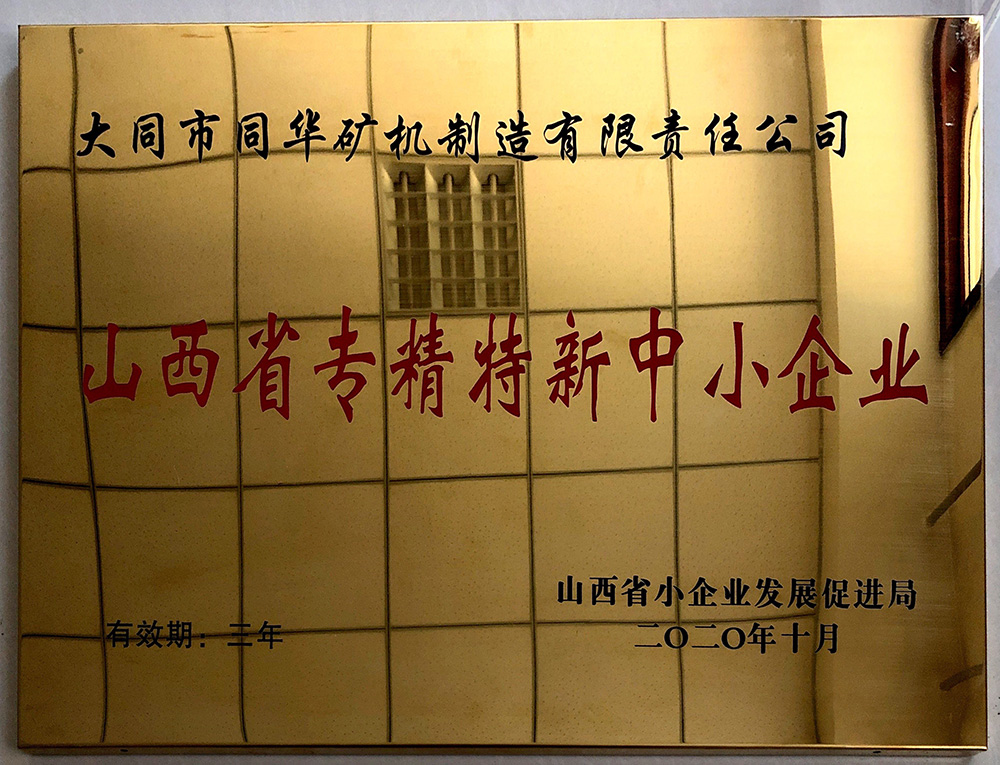 大同市同华矿机制造有限责任公司
山西省专精特新中小企业
山西省小企业发展促进局
有效期：三年
二〇二〇年十月